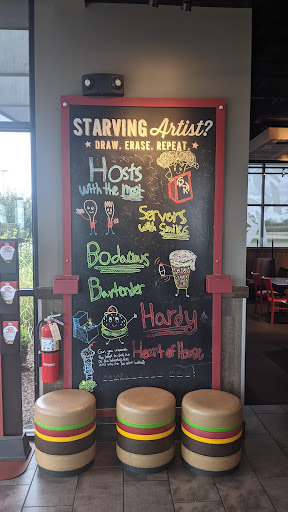 STARVING Artist?
DRAW. ERASE. REPEAT.
Hosts
with the most
Servers
with Smiles
Bodacious
Bartender
Hardy
Heart of House